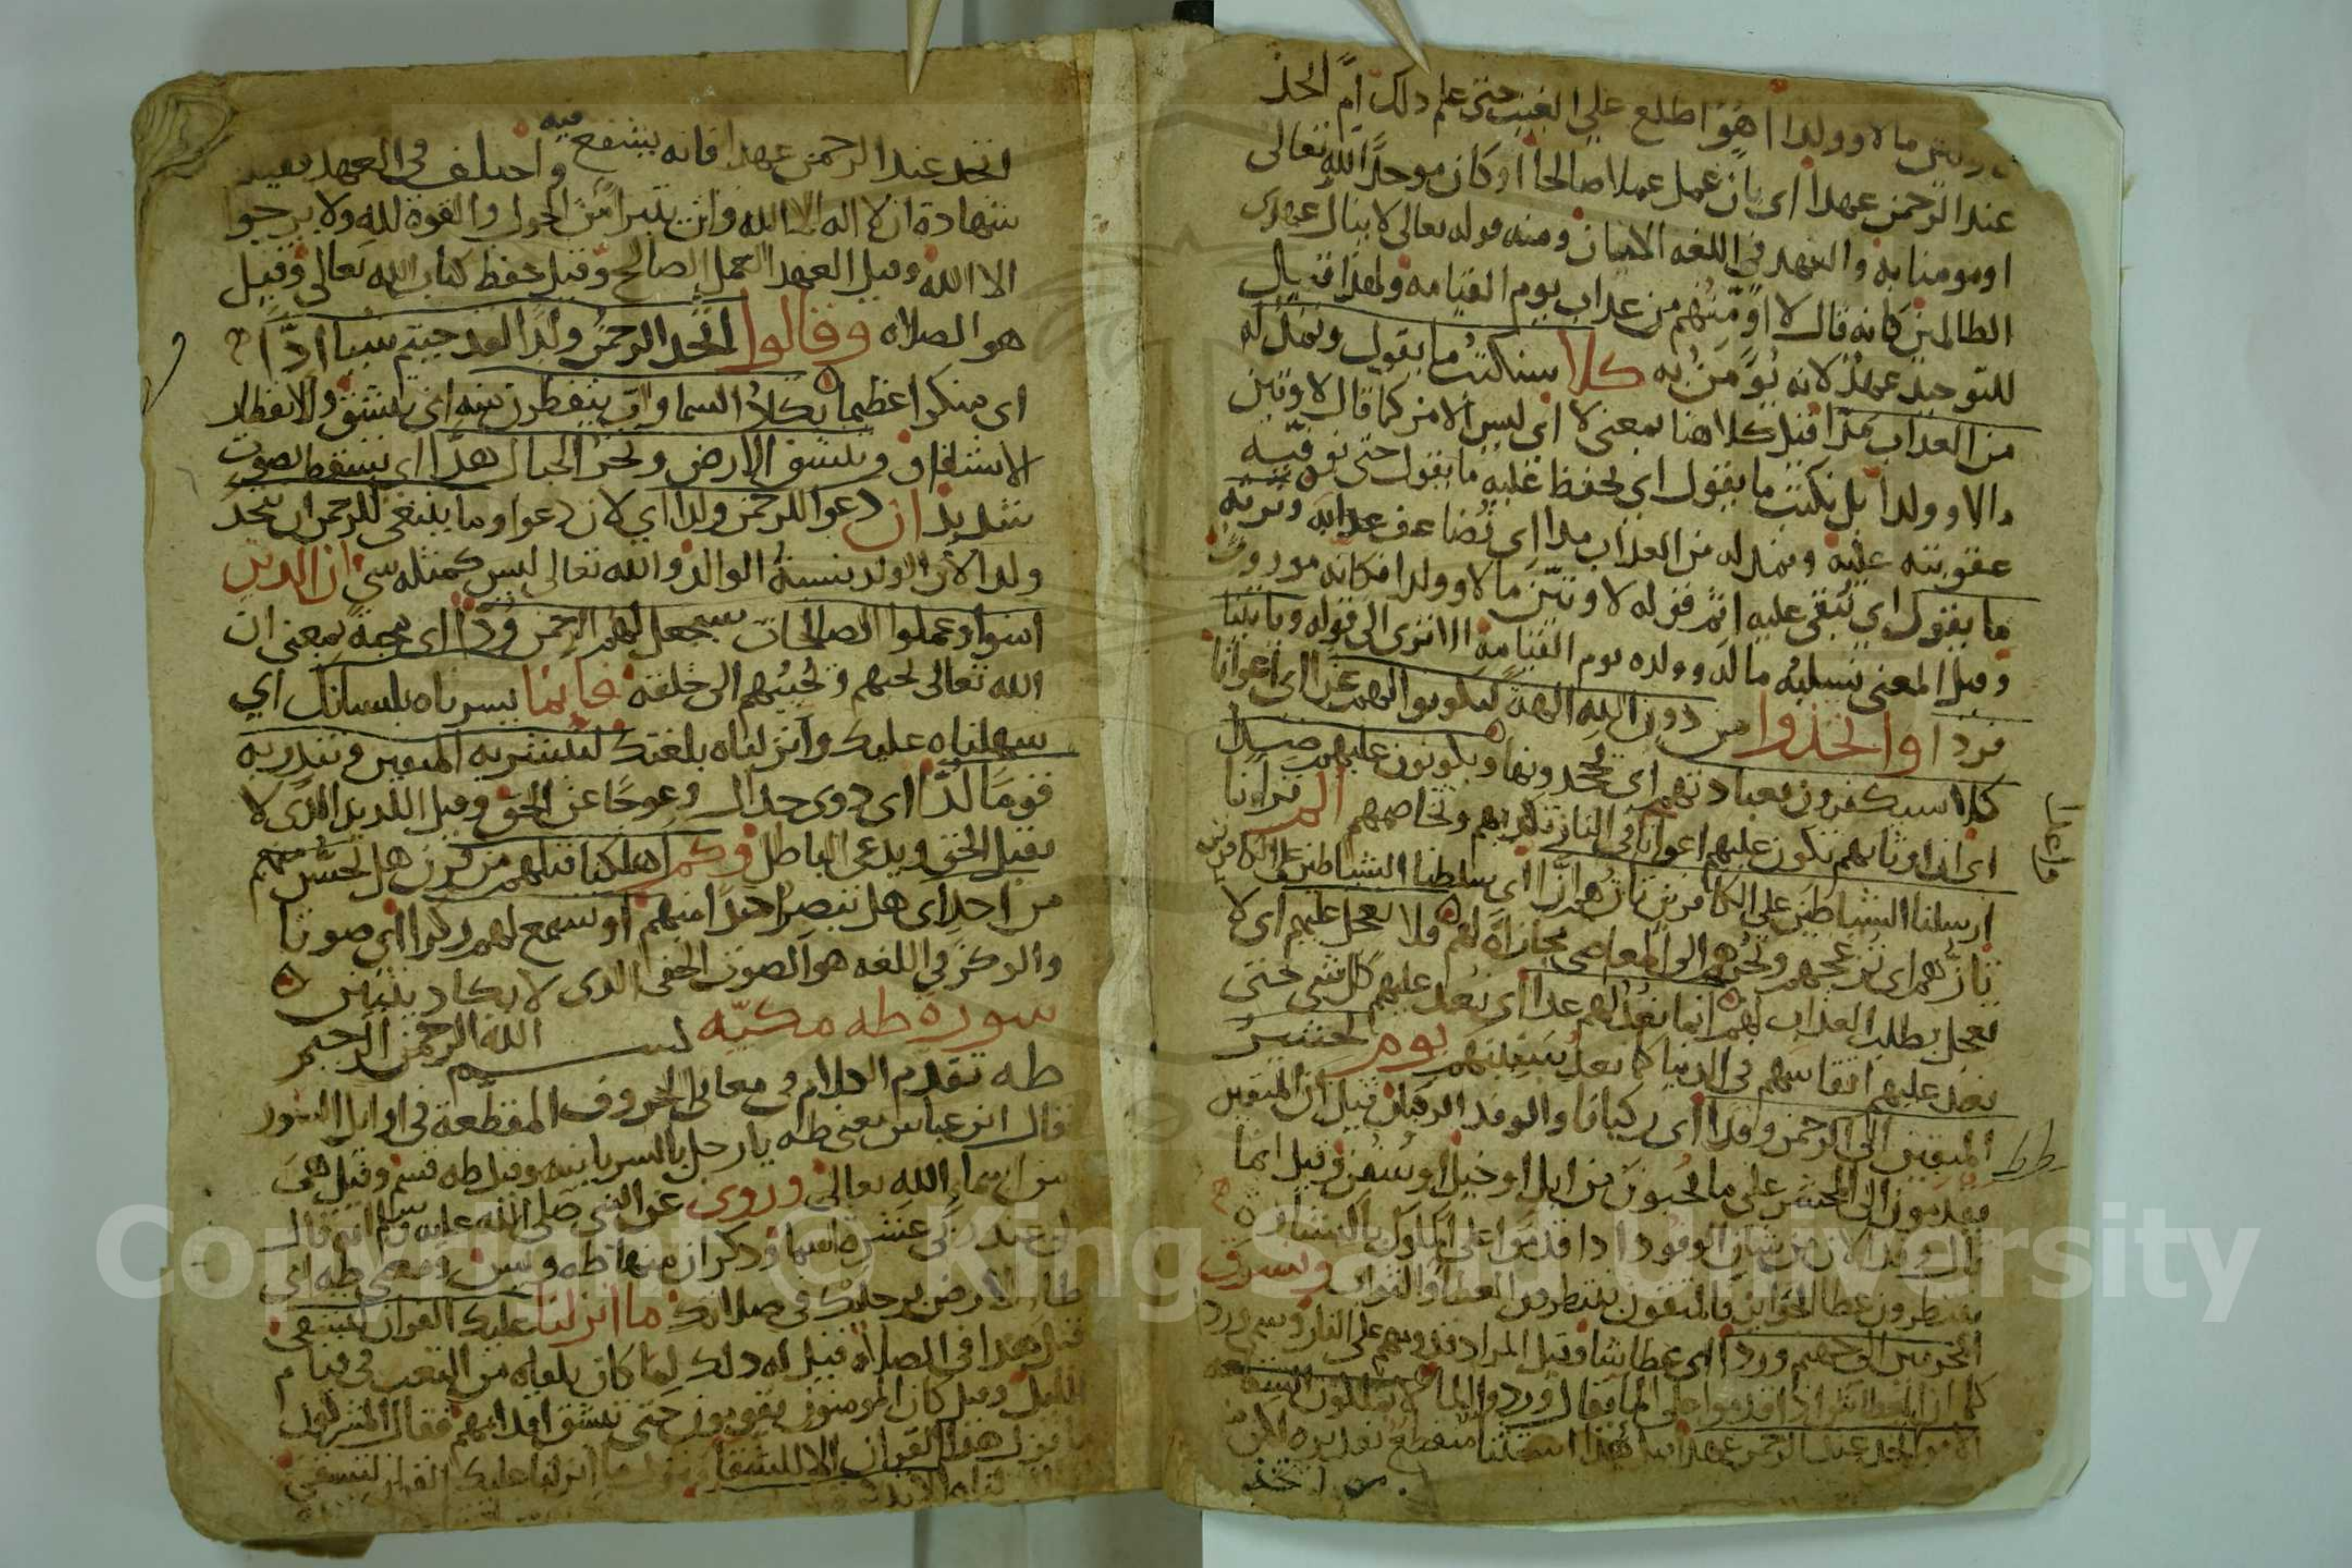 مالا وولدا اهو اطلع على الغيب حتى علم ذلك ام اتخذ
عند الرحمن عهدا اي بان عمل عملا صالحا او كان موحدا لله تعالى
او مومنا به والعهد في اللغه الامان ومنه قوله تعالى لا ينال عهدي
الظالمين كانه قال لا اومنهم من عذاب يوم القيامه ولهذا قيل
للتوحيد عهد لانه يومن به كلا سنكتب ما يقول ونمد له
من العذاب مدا قيل كلا هنا بمعنى لا اي ليس الامر كما قال لاوتين
مالا وولدا بل نكتب ما يقول اي نحفظ عليه ما يقول حتى نوفيه
عقوبته عليه ونمد له من العذاب مدا اي نضاعف عذابه ونرثه
ما يقول اي نبقي عليه اثم قوله لاوتين مالا وولدا فكانه موروث
وقيل المعنى نسلبه ماله وولده يوم القيامة الا ترى الى قوله وياتينا
فردا واتخذوا من دون الله الهة ليكونوا لهم عزا اي اعوانا
كلا سيكفرون بعبادتهم اي يجحدونها ويكونون عليهم ضدا
اي ان اوثانهم تكون عليهم اعوانا في النار تكذبهم وتخاصمهم الم تر انا
ارسلنا الشياطين على الكافرين تازهم ازا اي سلطنا الشياطين على الكافرين
تازهم اي تزعجهم الى المعاصي مجازاة لهم فلا تعجل عليهم اي لا
تعجل بطلب العذاب لهم انما نعد لهم عدا اي نعد عليهم كل شي حتى
نعد عليهم انفاسهم في الدنيا كما نعد سنينهم يوم نحشر
المتقين الى الرحمن وفدا اي ركبانا والوفد الركبان قيل ان المتقين
يقدمون الى المحشر على ما يحبون من ابل او خيل او سفن وقيل انما
قال وفدا لان من شان الوفود اذا قدموا على الملوك بالبشارة
ينتظرون عطا الجوايز فالمتقون ينتظرون العطا والثواب ونسوق
المجرمين الى جهنم وردا اي عطاشا وقيل المراد قدومهم على النار وسمي وردا
كما ان العطاش اذا قدموا على الما يقال وردوا الما لا يملكون الشفاعه
الا من اتخذ عند الرحمن عهدا هذا استثنا منقطع تقديره لكن
من اتخذ
اتخذ عند الرحمن عهدا فانه يشفع فيه واختلف في العهد فقيل
شهادة ان لا اله الا الله وان يتبرا من الحول والقوة لله ولا يرجوا
الا الله وقيل العهد العمل الصالح وقيل حفظ كتاب الله تعالى وقيل
هو الصلاه وقالوا اتخذ الرحمن ولدا لقد جيتم شيا ادا
اي منكرا عظيما تكاد السماوات يتفطرن منه اي تنشق والانفطار
الانشقاق وتنشق الارض وتخر الجبال هدا اي تسقط بصوت
شديد ان دعوا للرحمن ولدا اي لان دعوا وما ينبغي للرحمن ان يتخذ
ولدا لان الولد يشبه الوالد والله تعالى ليس كمثله شي ان الذين
امنوا وعملوا الصالحات سيجعل لهم الرحمن ودا اي محبة بمعنى ان
الله تعالى يحبهم ويحببهم الى خلقه فانما يسرناه بلسانك اي
سهلناه عليك وانزلناه بلغتك لتبشر به المتقين وتنذر به
قوما لدا اي ذوي جدال وعوجا عن الحق وقيل اللد الذي لا
يقبل الحق ويدعي الباطل وكم اهلكنا قبلهم من قرن هل تحس منهم
من احد اي هل تبصر احدا منهم او تسمع لهم ركزا اي صوتا
والركز في اللغه هو الصوت الخفي الذي لا يكاد يتبين
سورة طه مكيه بسم الله الرحمن الرحيم
طه تقدم الكلام في معاني الحروف المقطعة في اوايل السور
قال ابن عباس معنى طه يا رجل بالسريانيه وقيل طه قسم وقيل هي
من اسماء الله تعالى وروي عن النبي صلى الله عليه وسلم انه قال
لي عند ربي عشرة اسما وذكر ان منها طه ويس ومعنى طه اي
طا الارض برجليك في صلاتك ما انزلنا عليك القران لتشقى
قيل هذا في الصلاة قيل له ذلك لما كان يلقاه من التعب في قيام
الليل وقيل كان المومنون يقومون حتى تشق اقدامهم فقال المشركون
ما نزل هذا القران الا للشقا فنزلت ما انزلنا عليك القران لتشقى
Copyright © King Saud University